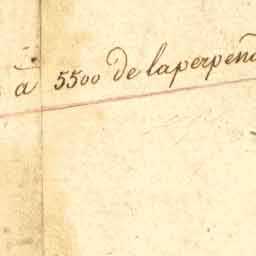 à 5500 de laperpen